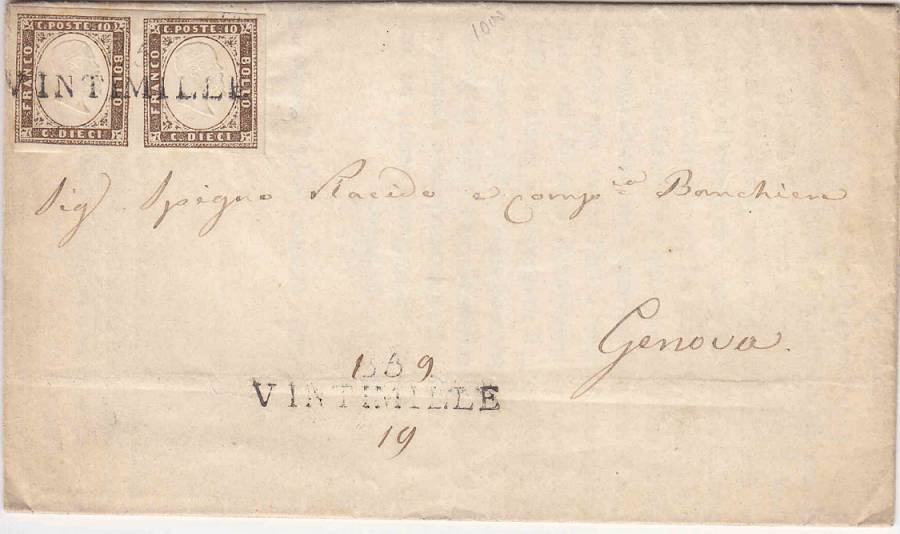 C. POSTE. 10
FRANCO
BOLLO
C. DIECI
C. POSTE. 10
FRANCO
BOLLO
C. DIECI
VINTIMILLE
Sig Spigno Placido e Comp.ia Banchieri
Genova.
VINTIMILLE
19